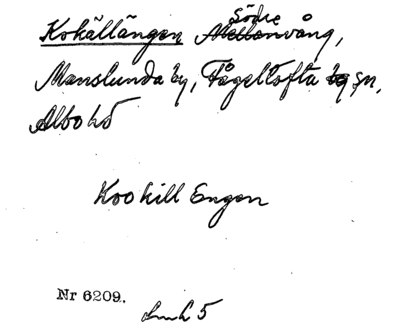 Södre
Kokällängen Mellanvång,
Manslunda by, Fågeltofta by sn,
Albo hd
Koo kill Engen
Nr 6209.
5